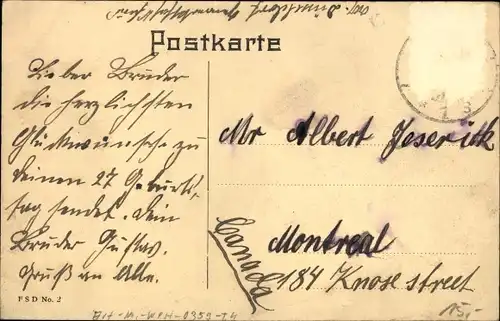 Postkarte
Lieber Bruder
die herzlichsten
Glückwünsche zu
deinen 27 Geburts-
tag sendet. Dein
Bruder Gustav.
Gruß an Alle.
Mr Albert Jeserick
Montreal
184 Knose street
Canada
FSD No. 2
15,-